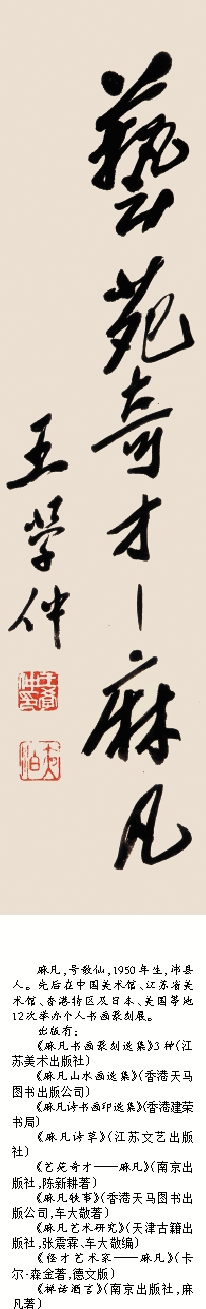 藝苑奇才—麻凡
王學仲
麻凡,号散仙,1950年生,沛县
人。先后在中国美术馆、江苏省美
术馆、香港特区及日本、美国等地
12次举办个人书画篆刻展。
出版有:
《麻凡书画篆刻选集》3种(江
苏美术出版社)
《麻凡山水画选集》(香港天马
图书出版公司)
《麻凡诗书画印选集》(香港建荣
书局)
《麻凡诗草》(江苏文艺出版
社)
《艺苑奇才——麻凡》(南京出
版社,陈新耕著)
《麻凡轶事》(香港天马图书出
版公司,车大敬著)
《麻凡艺术研究》(天津古籍出
版社,张震霖、车大敬编)
《怪才艺术家——麻凡》(卡
尔·森金著,德文版)
《禅话酒言》(南京出版社,麻
凡著)